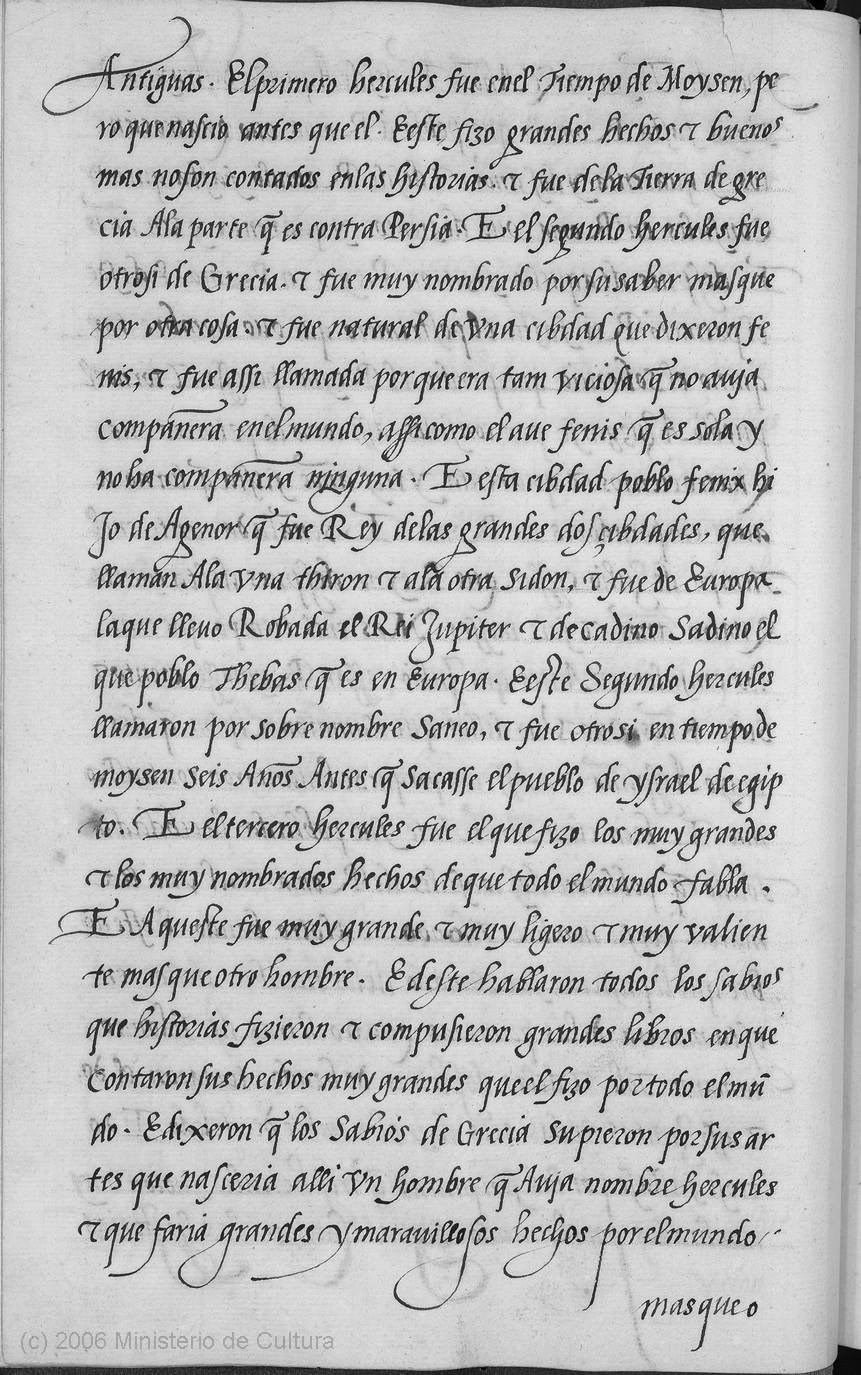 Antiguas. El primero hercules fue en el Tiempo de Moysen, pe
ro que nascio antes que el. E este fizo grandes hechos τ buenos
mas no son contados en las historias. τ fue de la Tierra de gre
cia A la parte q̃ es contra Persia. E el segundo hercules fue
otrosi de Grecia. τ fue muy nombrado por su saber mas que
por otra cosa. τ fue natural de vna cibdad que dixeron fe
nis, τ fue assi llamada por que era tam viciosa q̃ no auja
compañera en el mundo, assi como el aue fenis q̃ es sola y
no ha compañera ninguna. E esta cibdad poblo fenix hi
Jo de Agenor q̃ fue Rey de las grandes dos çibdades, que
llaman A la vna thiron τ a la otra sidon, τ fue de Europa
la que lleuo Robada el Rei Jupiter τ de cadino Sadino el
que poblo Thebas q̃ es en Europa. E este Segundo hercules
llamaron por sobre nombre Saneo, τ fue otrosi en tiempo de
moysen seis Años Antes q̃ sacasse el pueblo de ysrael de egip
to. E el tercero hercules fue el que fizo los muy grandes
τ los muy nombrados hechos de que todo el mundo fabla.
E Aqueste fue muy grande τ muy ligero τ muy valien
te mas que otro hombre. E deste hablaron todos los sabios
que historias fizieron τ compusieron grandes libros en que
Contaron sus hechos muy grandes que el fizo por todo el mũ
do. E dixeron q̃ los Sabios de Grecia supieron por sus ar
tes que nasceria alli vn hombre q̃ Auja nombre hercules
τ que faria grandes y marauillosos hechos por el mundo
mas que o
(c) 2006 Ministerio de Cultura